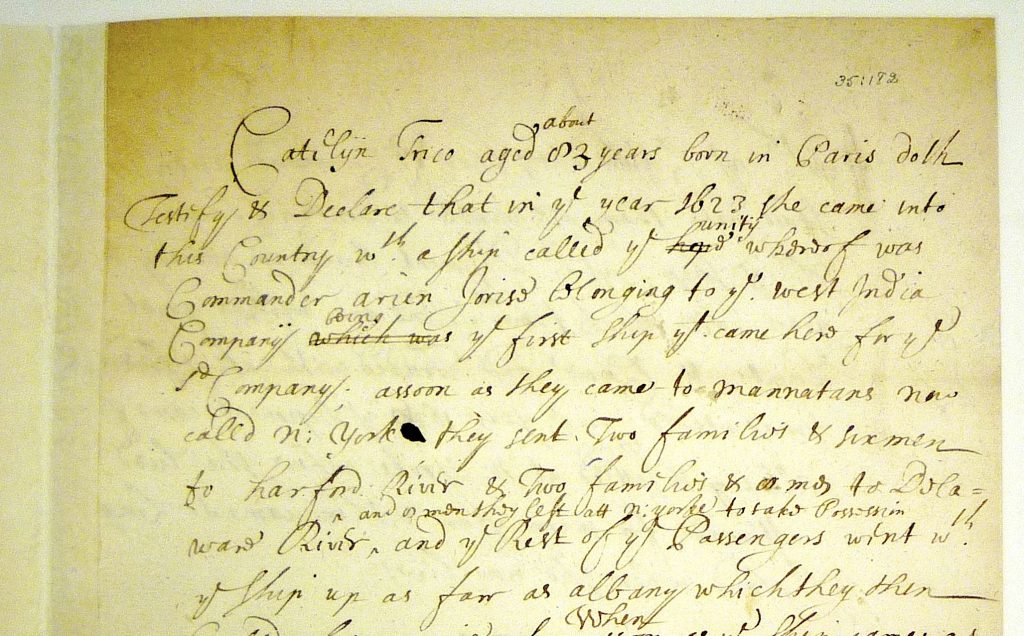 35:182
about
Catelijn Trico aged 83 years born in Paris doth
Testify & Declare that in ye year 1623 she came into
unity
this Country wth a ship called ye whereof was
Commander arien Jorise belonging to ye west India
Being
Company which was ye first ship yt came here for ye
sd Company. assoon as they came to mannatans now
called n: York they sent Two families & six men
to harford River & Two families & men to Dela=
and 8 men they left att n: yorke to take Possession
ware River, and ye Rest of ye Passengers went wth
ye ship up as farr as albany which they then
When